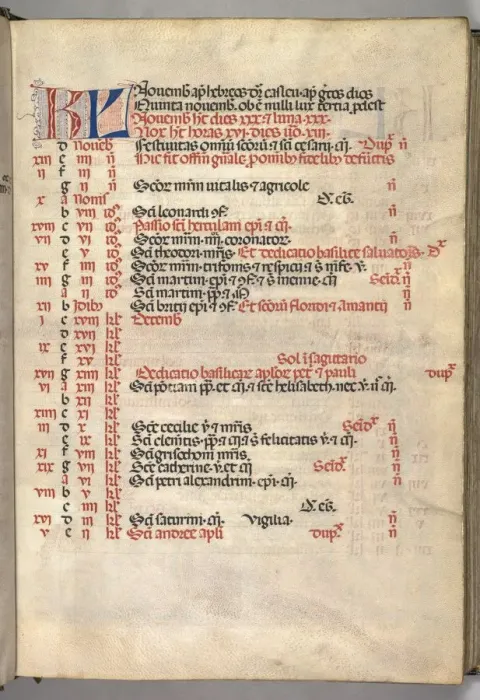 KL Novemb ap hebreos dr casleu ap grecos dies
Quinta novemb. ob e nulli lux tertia pdest
Novemb ht dies xxx et luna xxx.
Nox ht horas xvi dies vo viii.
d Noueb Festiuitas omiu scoru et sci cesarii m. Dup n
xiii e iiii n Hic fit offm gnale p omib fidelib defuctis
ii f iii n
g ii n Scor mrm uitalis et agricole n
x a Nonis O. es.
b viii id Sci leonardi 9f. n
xviii c vii id Passio sci herculani epi et m.
vii d vi id Scor mrm iiii coronator. n
e v id Sci theodori mris. Et dedicatio basilice saluatoris. D
xv f iiii id Scor mrm trifonis et respicii et s nife v. n
iiii g iii id Sci martini epi et 9f. et s menne m. Seid n
a ii id Sci martini pp et m n
xii b Idib Sci britii epi et 9f. Et scoru floridi et amantii n
i c xviii kl Decemb
d xvii kl
ix e xvi kl
f xv kl Sol i sagitario
xvii g xiiii kl Dedicatio basilicar aplor pet et pauli dup
vi a xiii kl Sci potiani pp et m et sce helisabeth. nec v. n m.
b xii kl
xiiii c xi kl
iii d x kl Sce cecilie v et mris. Seid n
e ix kl Sci clemetis pp et m et s felicitatis v. et m. n
xi f viii kl Sci grisogoni mris. n
xix g vii kl Sce catherine v. et m. Seid. n
a vi kl Sci petri alexandrini epi. m. n
viii b v kl
c iiii kl O. es.
xvi d iii kl Sci saturnini m. Vigilia. n
v e ii kl Sci andree apli dup. n